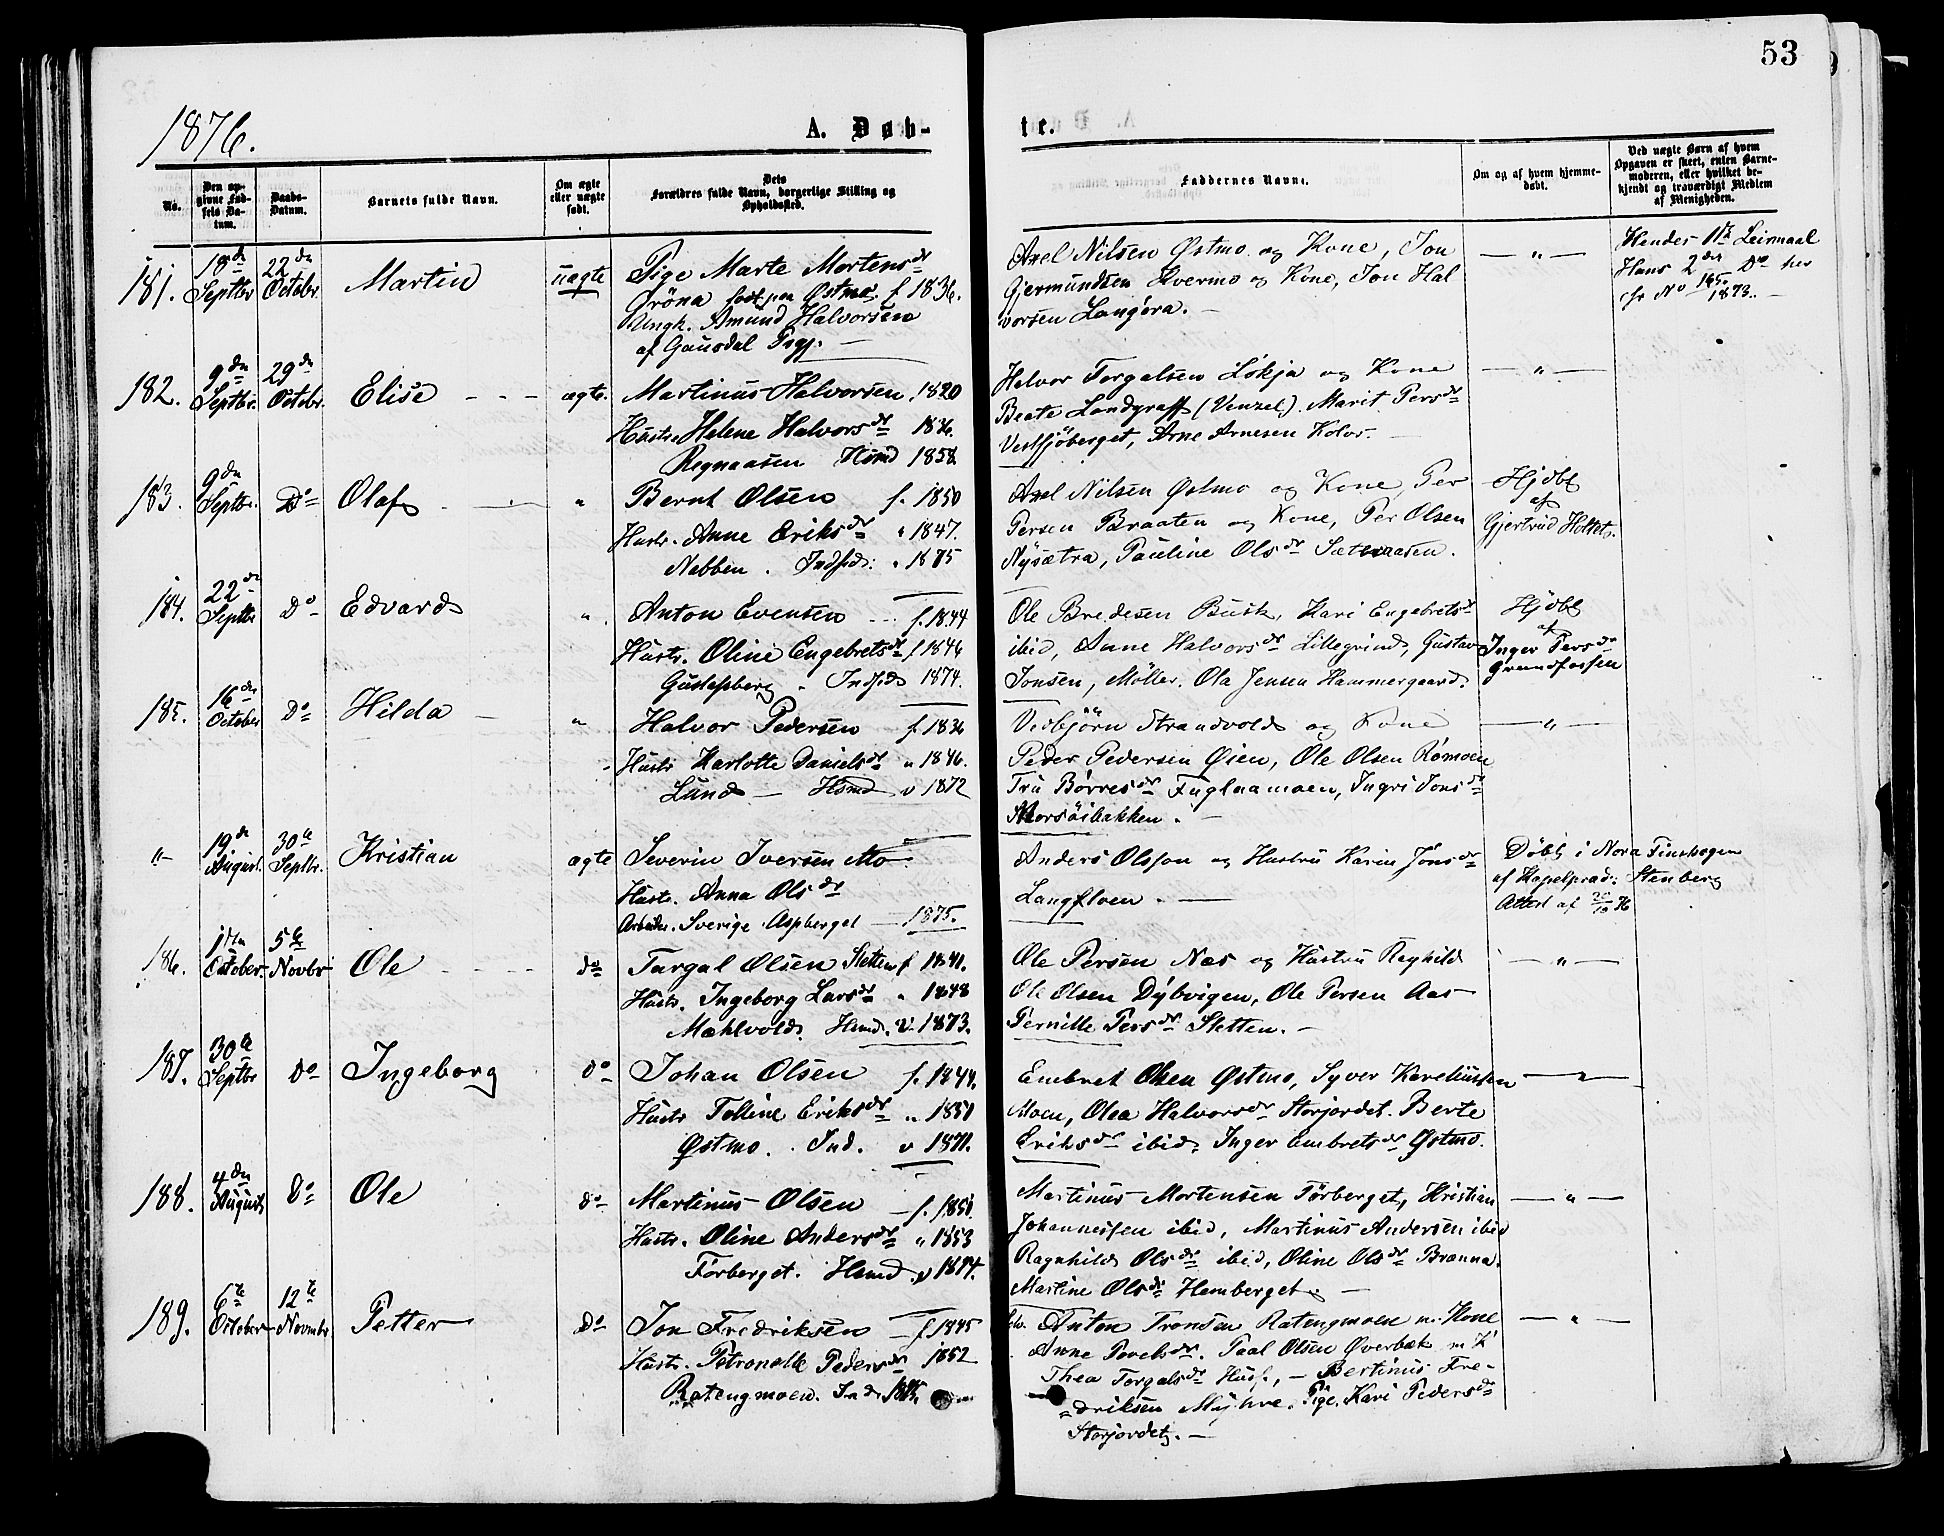 53
1876.
A. Døb-
te.
No.
Den op-
givne Fød-
sels Da-
tum.
Daabs-
Datum.
Barnets fulde Navn.
Om ægte
eller uægte
født.
Dets
Forældres fulde Navn, borgerlige Stilling og
Opholdssted.
Faddernes Navne.
Om og af hvem hjemme-
døbt.
Ved uægte Børn af hvem
Opgaven er skeet, enten Barne-
moderen, eller hvilket be-
kjendt og troværdigt Medlem
af Menigheden.
181.
18de
Septbr
22de
Octobr
Martin
uægte
Pige Marte Mortensdr
Gröna født paa Østmo f 1836.
Ungk. Amund Halvorsen
af Gausdal Prgj. —
Axel Nilsen Østmo og Kone, Jon
Gjermundsen Kvermo og Kone, Jon Hal
vorsen Langöra. —
— " —
Hendes 1te Leirmaal
Hans 2det Do her
cfr No 165. 1873. —
182.
9de
Septbr.
29de
Octobr.
Elise
ægte.
Martinus Halvorsen, 1820
Hustr. Helene Halvorsdr 1836.
Regnaasen Hsmd 1858.
Halvor Torgalsen Løkja og Kone
Beate Landgraff (Venzel). Marit Persdr
Vestsjöberget, Arne Arnesen Kolos. —
— " —
183.
9de
Septbr.
Do
Olaf
"
Bernt Olsen f. 1850
Hustr. Anne Eriksdr " 1847.
Nabben. Indsid: " 1875
Axel Nilsen Østmo og Kone, Per
Persen Braaten og Kone, Per Olsen
Nysætra, Pauline Olsdr Sætraasen.
Hjdbt
af
Gjertrud Holtet.
184.
22de
Septbr
Do
Edvard
".
Anton Evensen f. 1844
Hustr. Oline Engebretsdr f 1846
Gustafsberg. Indsid 1874.
Ole Bredesen Busk, Kari Engebretsdr
ibid, Anne Halvorsdr Lillegrind, Gustav
Jonsen, Møller. Ola Jensen Hammergaard.
Hjdbt
af
Inger Persdr
Grundfossen
185.
16de
October
Do
Hilda
"
Halvor Pedersen f. 1836
Hustr Karlotte Danielsdr " 1846.
Lund — Hsmd v 1872
Vedbjörn Strandvold og Kone
Peder Pedersen Øien, Ole Olsen Römoen
Tru Børresdr Fuglaamoen, Ingri Jonsdr
Korsöibakken. —
— " —
"
19de
August.
30te
Septbr.
Kristian
ægte
Severin Iversen Mo
Hustr. Anna Olsdr
Arbeider. Sverige Aspberget — 1875.
Anders Olsson og Hustru Karin Jonsdr
Langfloen. —
Döbt i Nora Finskogen
af Kapelpræd: Stenberg
Attest af 20/10 76
186.
1ste
October.
5te
Novbr
Ole
do
Torgal Olsen Sletten f 1841.
Hustr. Ingeborg Larsdr " 1848
Mæhlvold. Hsmd. v. 1873.
Ole Persen Næs og Hustru Raghild
Ole Olsen Dýbvigen, Ole Persen Aas
Pernille Persdr Sletten. —
— " —
187.
30te
Septbr
Do
Ingeborg
do
Johan Olsen f. 1844.
Hustr Tolline Eriksdr " 1851
Østmo. Ind. v 1871.
Embret Olsen Østmo, Syver Kareliussen
Moen, Olea Halvorsdr Storjordet. Berte
Eriksdr ibid, Inger Embretsdr Østmo.
— " —
188.
4de
August
Do
Ole
do
Martinus Olsen f. 1851.
Hustr. Oline Andersdr " 1853
Förberget. Hsmd. v 1874.
Martinus Mortensen Förberget, Kristian
Johannessen ibid, Martinus Andersen ibid
Ragnhild Olsdr ibid, Oline Olsdr Brænna.
Martine Olsdr Hemberget. —
— " —
189.
6te
October
12te
Novmbr
Petter
Do
Jon Fredriksen f 1845
Hustr. Petronelle Pedersdr 1852
Ratengmoen. Ind. 1875.
Anton Tronsen Ratengmoen m. Kone
Anne Povelsdr. Paal Olsen Øverbæk m K
Thea Torgalsdr Husf., — Bertinus Fre-
driksen Myhre. Pige. Kari Pedersdr
Storjordet. —
— " —